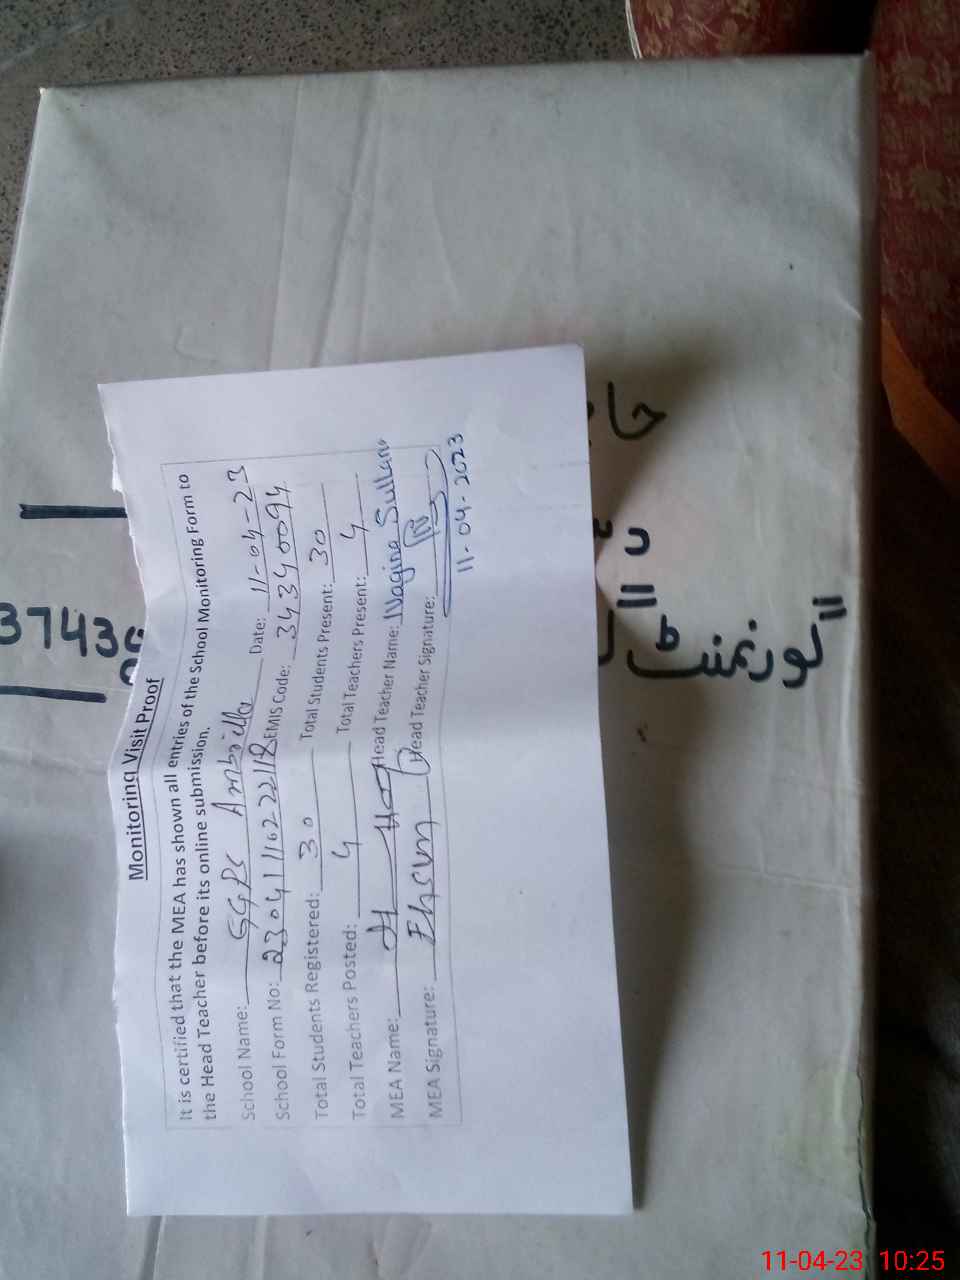 Monitoring Visit Proof
It is certified that the MEA has shown all entries of the School Monitoring Form to
the Head Teacher before its online submission.
School Name: GGPS Ambrilla Date: 11-04-23
School Form No: 230411162 22118 EMIS Code: 34340094
Total Students Registered: 30 Total Students Present: 30
Total Teachers Posted: 4 Total Teachers Present: 4
MEA Name: Head Teacher Name: Nagina Sultan
MEA Signature: Head Teacher Signature:
11-04-2023
گورنمنٹ
11-04-23 10:25